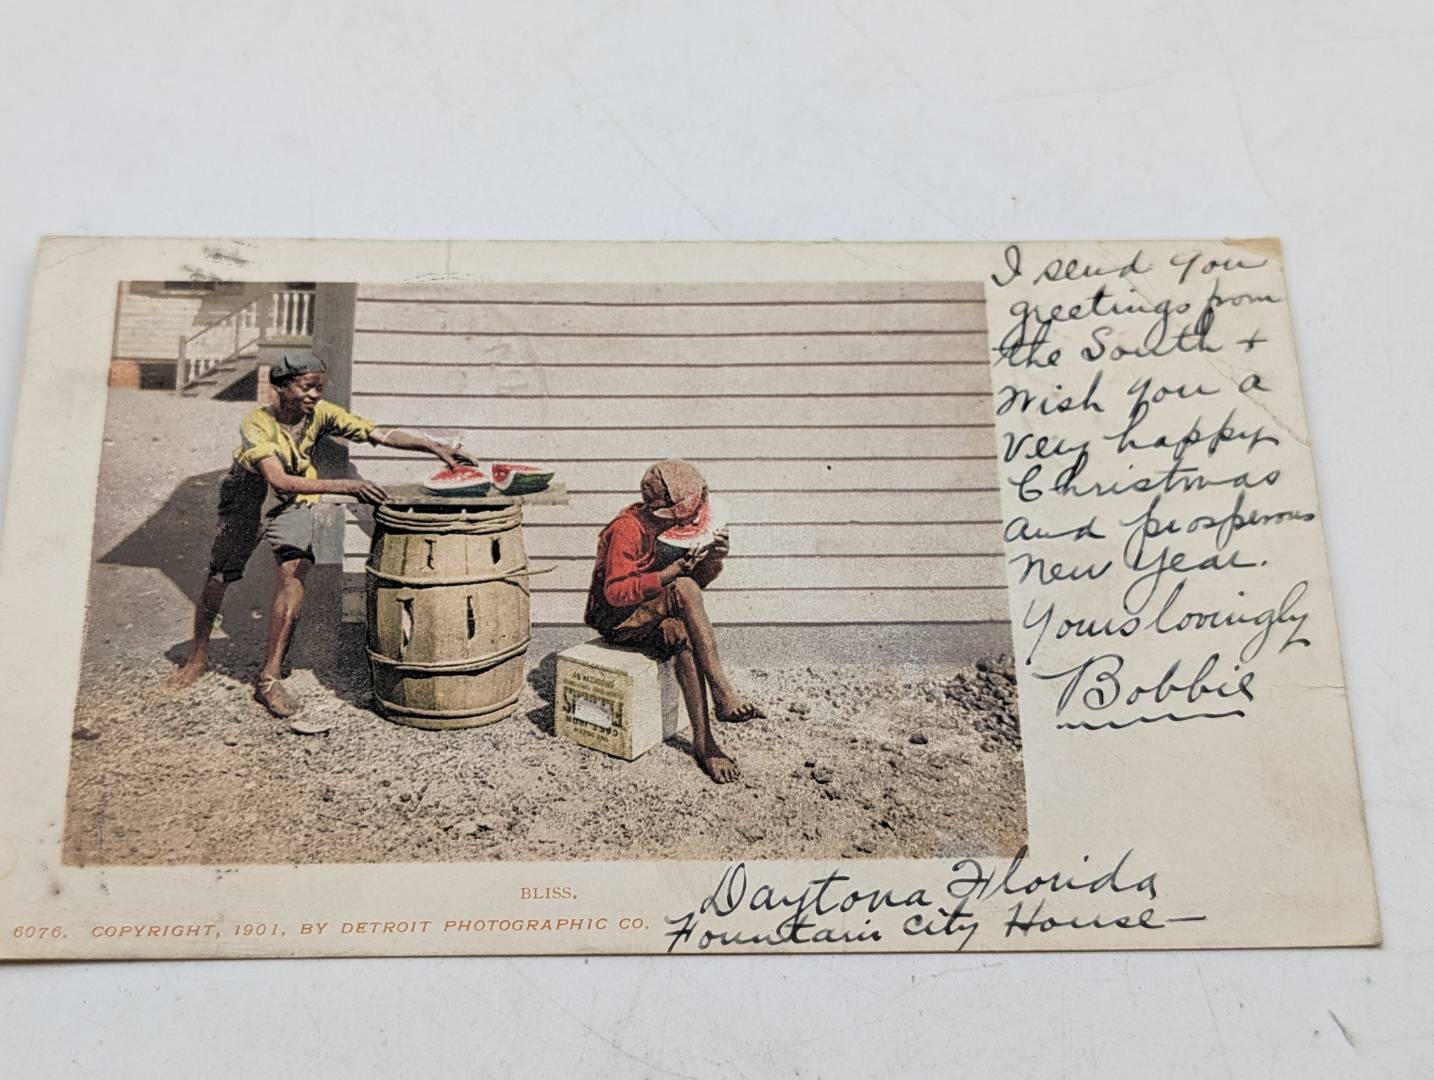 I send you
greetings from
the South +
wish you a
very happy
Christmas
and prosperous
New Year.
Yours lovingly
Bobbie
BLISS.
6076. COPYRIGHT, 1901, BY DETROIT PHOTOGRAPHIC CO.
Daytona Florida
Fountain City House—